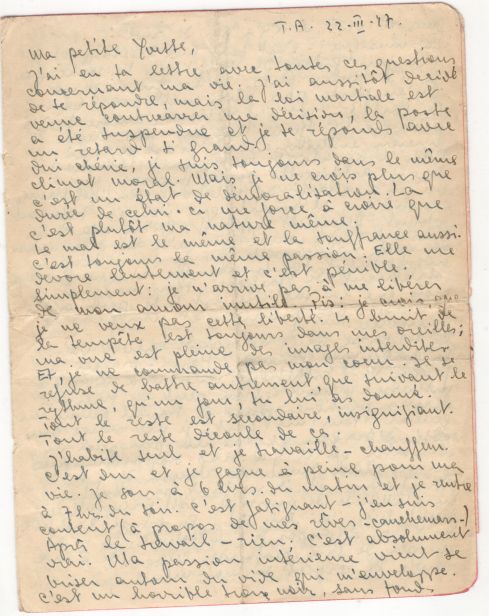 T.A. 22-III-47.
Ma petite Yvette,
J'ai eu ta lettre avec toutes ces questions
concernant ma vie. J'ai aussitôt décidé
de te répondre, mais la loi martiale est
venue contrecarrer ma décision, la poste
a été suspendue et je te réponds avec
un retard si grand.
Oui chérie, je suis toujours dans le même
climat moral. Mais je ne crois plus que
c'est un état de démoralisation. La
durée de celui-ci me force à croire que
c'est plutôt ma nature même.
Le mal est le même et la souffrance aussi.
C'est toujours la même passion. Elle me
dévore lentement et c'est pénible.
Simplement: je n'arrive pas à me libérer
de mon amour inutile. Pis: je crois que
je ne veux pas cette liberté. Le bruit de
la tempête est toujours dans mes oreilles;
ma vue est pleine des images interdites.
Et, je ne commande pas mon coeur. Il se
refuse de battre autrement, que suivant le
rythme, qu'un jour, tu lui as donné.
Tout le reste est secondaire, insignifiant.
Tout le reste découle de ça.
J'habite seul et je travaille - chauffeur.
C'est dur et je gagne à peine pour ma
vie. Je sors à 6 hrs. du matin et je rentre
à 7 hrs. du soir. C'est fatigant - j'en suis
content (à propos de mes rêves - cauchemars -)
Après le travail - rien. C'est absolument
vrai. Ma passion intérieure vient se
briser autour du vide qui m'enveloppe.
C'est un horrible trou noir, sans fond